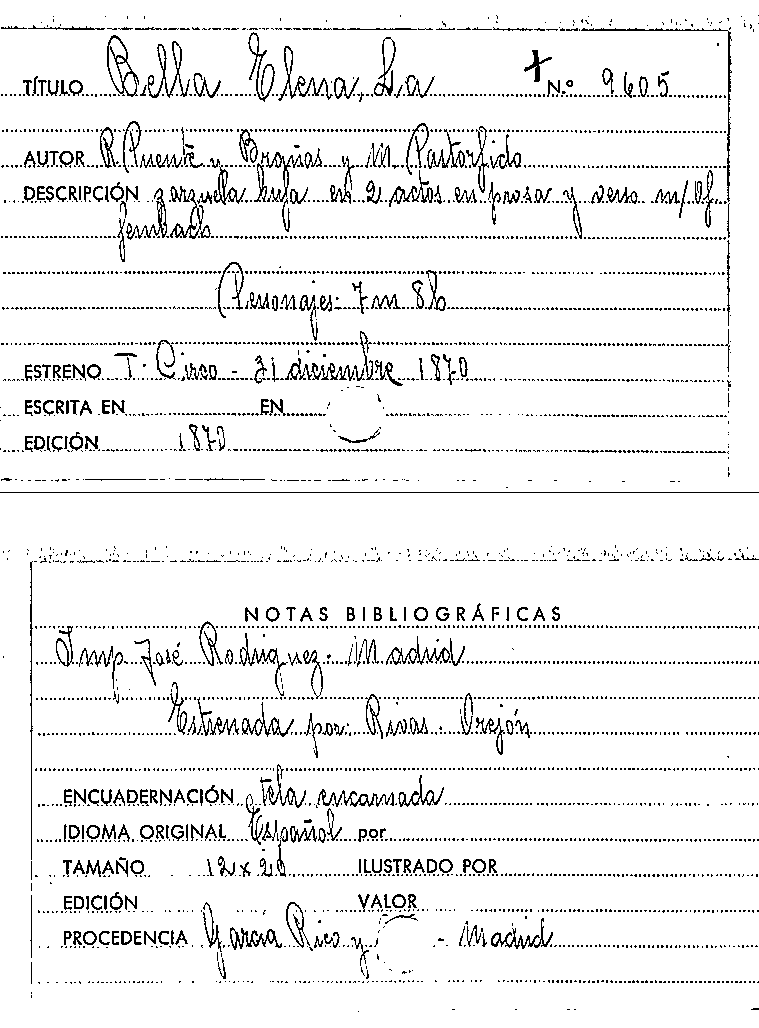 TÍTULO Bella Elena, La + N.º 9605
AUTOR R. Puente y Brañas y M. Pastorfido
DESCRIPCIÓN zarzuela bufa en 2 actos en prosa y verso m/Of-
fembach
Personajes: 7m 8h
ESTRENO T. Circo - 31 diciembre 1870
ESCRITA EN EN
EDICIÓN 1870
NOTAS BIBLIOGRÁFICAS
Imp José Rodriguez. Madrid
Estrenada por: Rivas. Orejón
ENCUADERNACIÓN tela encarnada
IDIOMA ORIGINAL Español por
TAMAÑO 12x20 ILUSTRADO POR
EDICIÓN VALOR
PROCEDENCIA García Rico y - Madrid